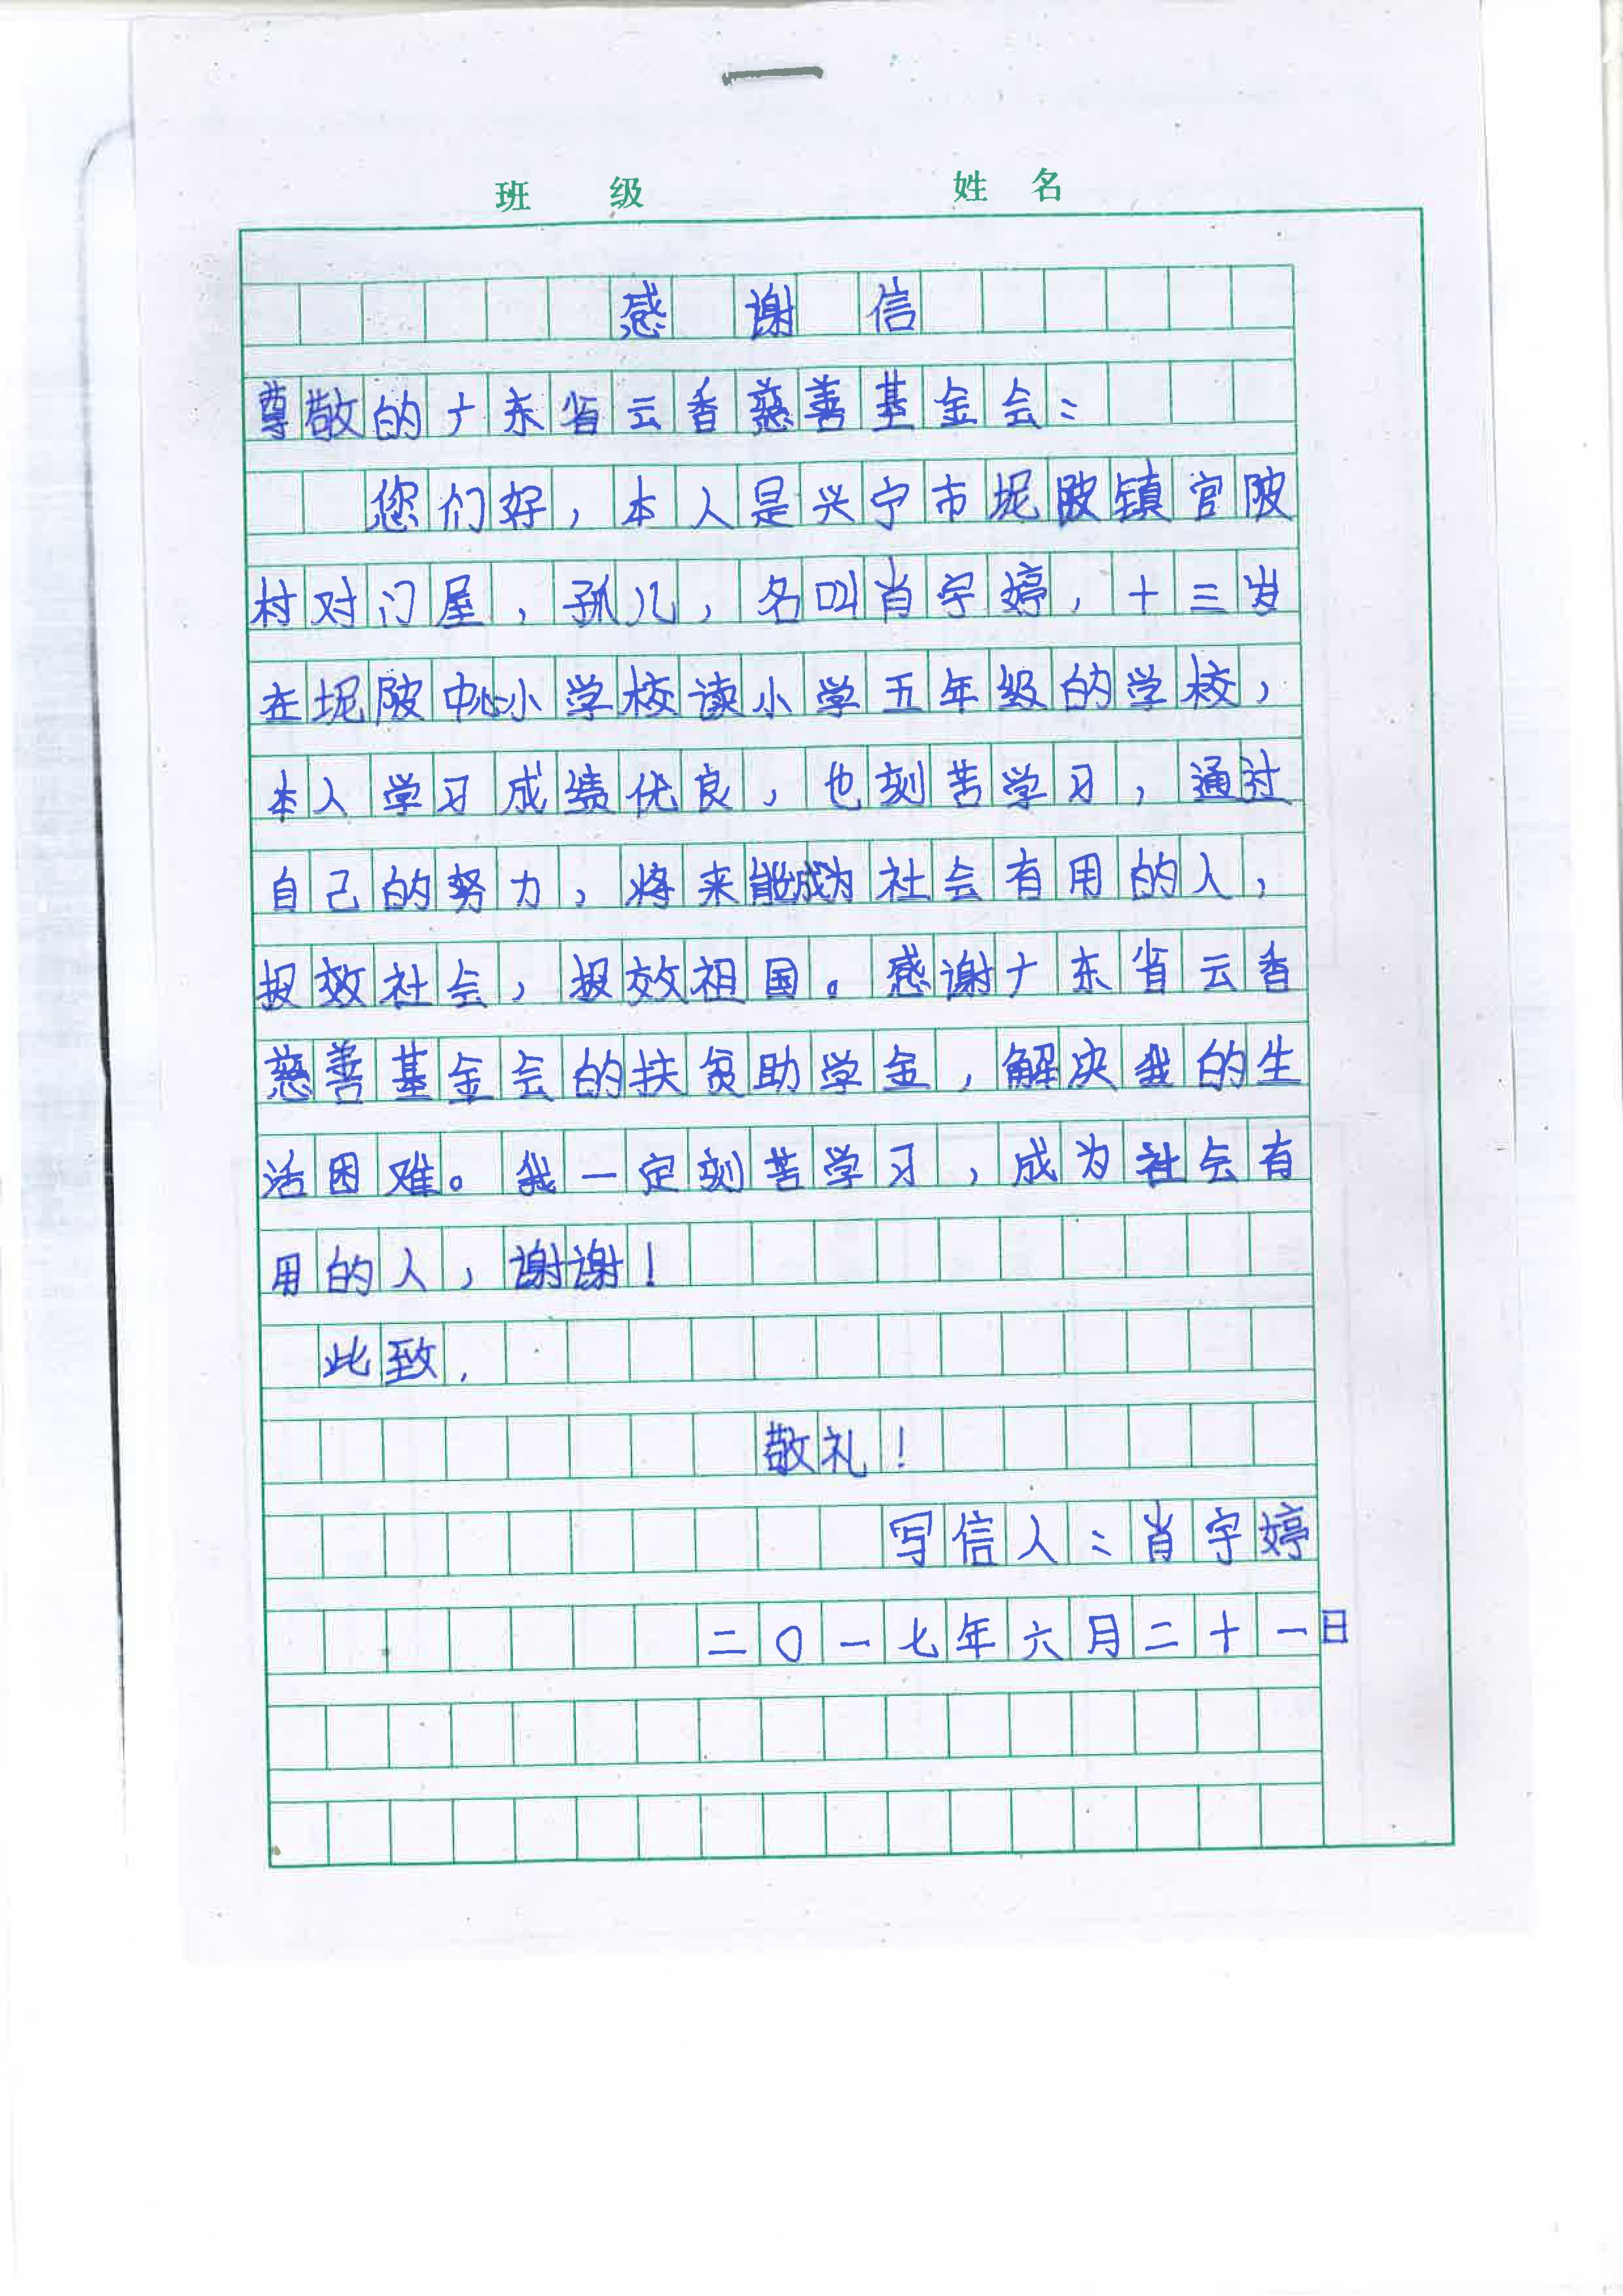 班 级 姓 名
感 谢 信
尊敬的广东省云香慈善基金会：
您们好，本人是兴宁市坭陂镇官陂
村对门屋，孤儿，名叫肖宇婷，十三岁
在坭陂中心小学校读小学五年级的学校，
本人学习成绩优良，也刻苦学习，通过
自己的努力，将来能成为社会有用的人，
报效社会，报效祖国。感谢广东省云香
慈善基金会的扶贫助学金，解决我的生
活困难。我一定刻苦学习，成为社会有
用的人，谢谢！
此致，
敬礼！
写信人：肖宇婷
二〇一七年六月二十一日